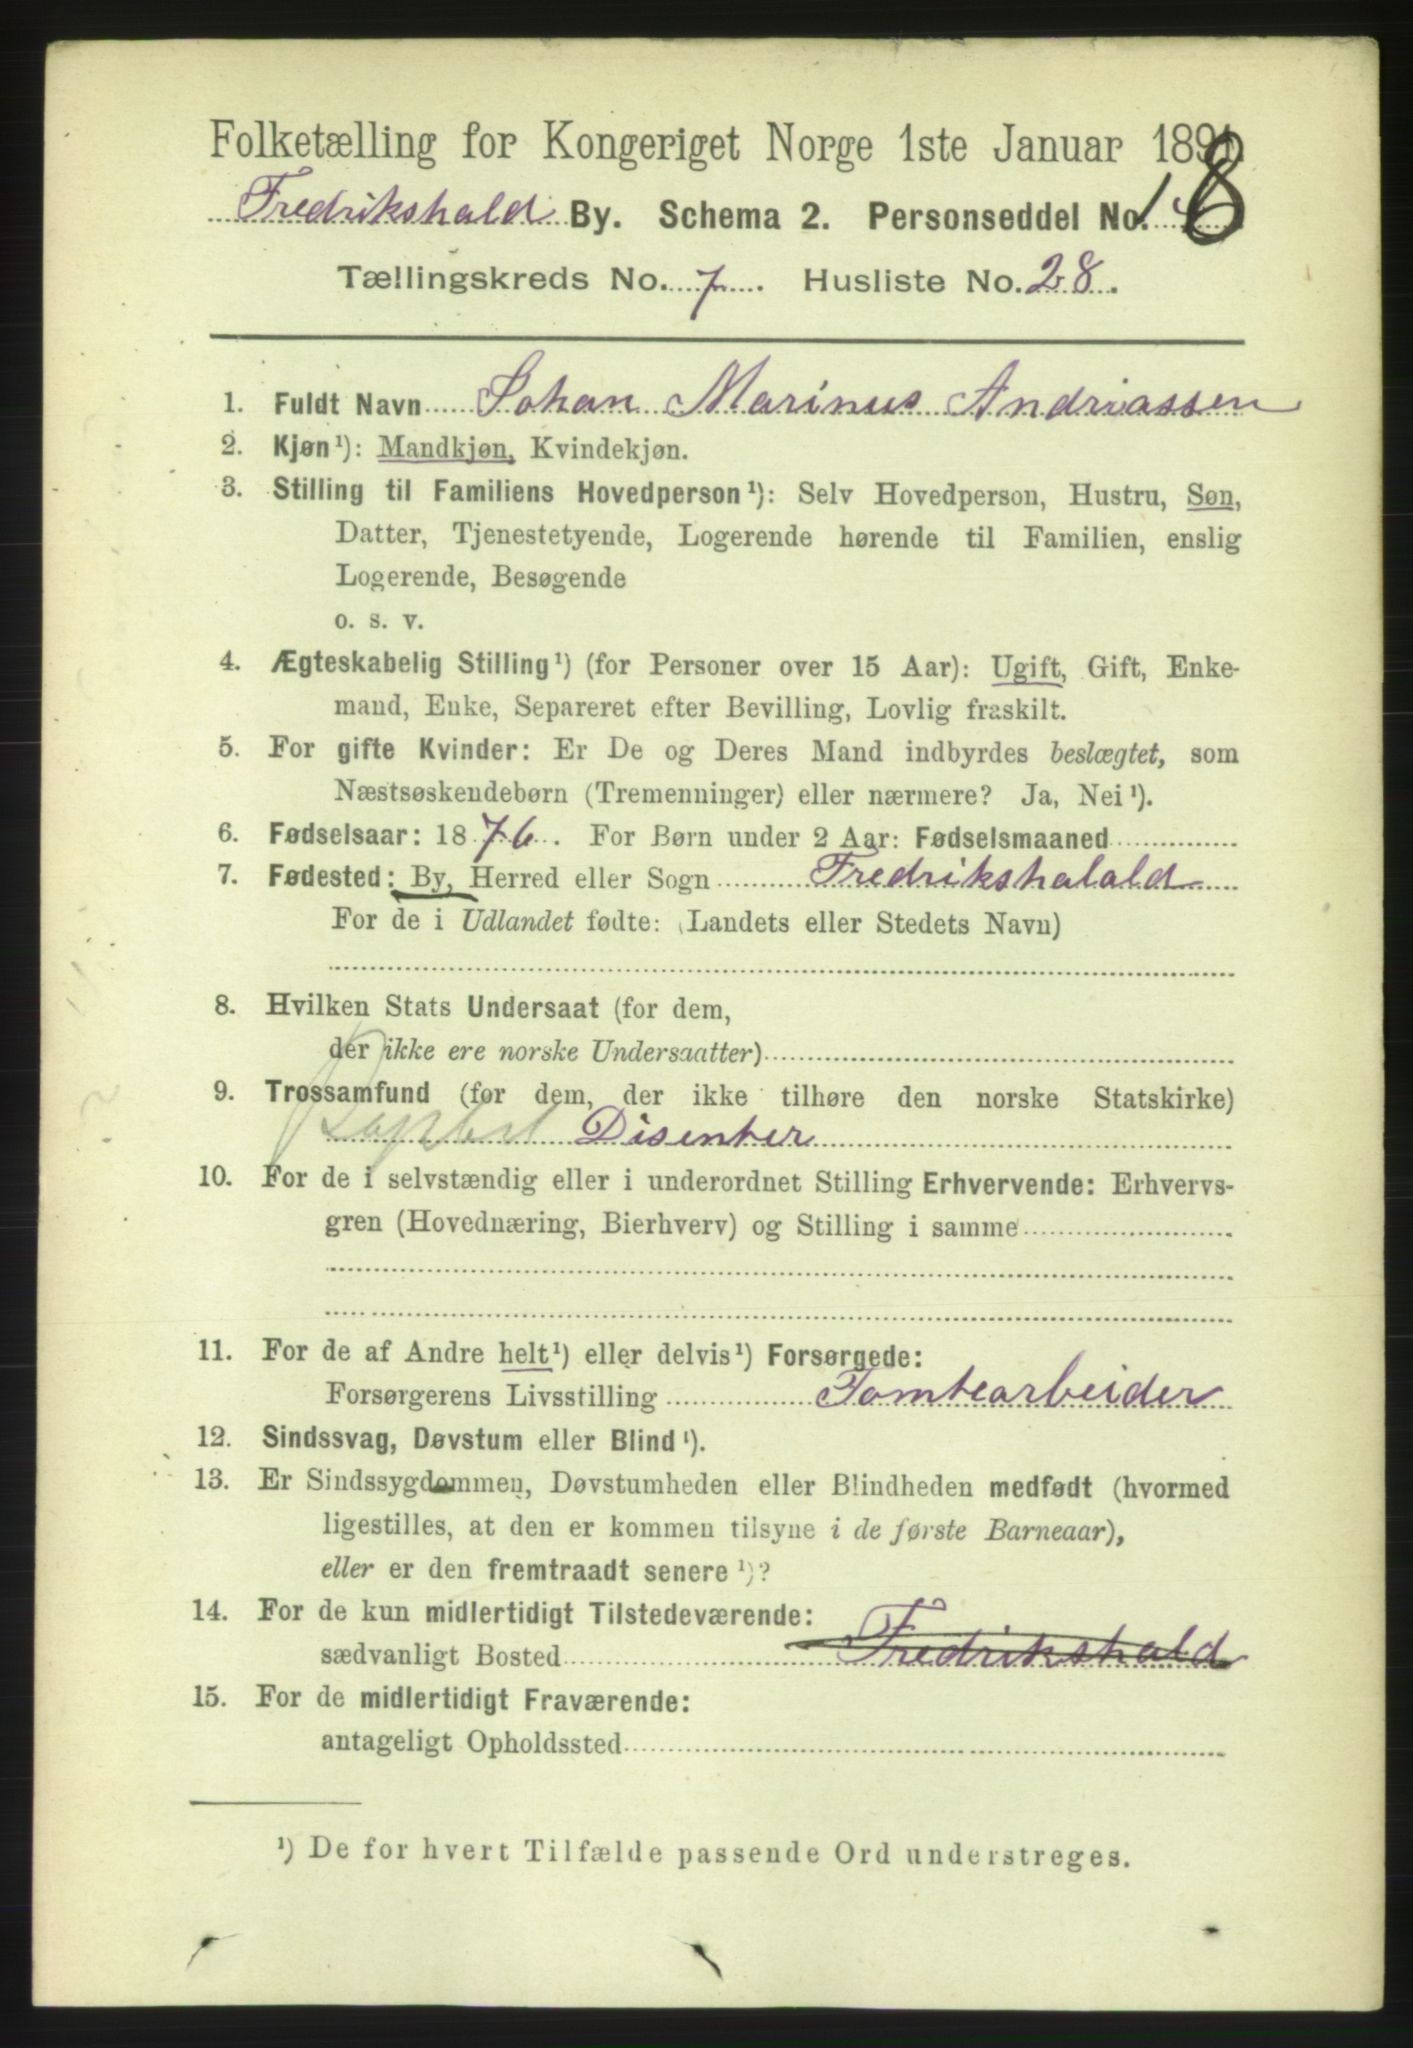 Folketælling for Kongeriget Norge 1ste Januar 1891.
Fredrikshald By. Schema 2. Personseddel No. 18
Tællingskreds No. 7. Husliste No. 28.
1. Fuldt Navn Johan Marinus Andriassen
2. Kjøn¹): Mandkjøn, Kvindekjøn.
3. Stilling til Familiens Hovedperson¹): Selv Hovedperson, Hustru, Søn,
Datter, Tjenestetyende, Logerende hørende til Familien, enslig
Logerende, Besøgende
o. s. v.
4. Ægteskabelig Stilling¹) (for Personer over 15 Aar): Ugift, Gift, Enke-
mand, Enke, Separeret efter Bevilling, Lovlig fraskilt.
5. For gifte Kvinder: Er De og Deres Mand indbyrdes beslægtet, som
Næstsøskendebørn (Tremenninger) eller nærmere? Ja, Nei¹).
6. Fødselsaar: 1876. For Børn under 2 Aar: Fødselsmaaned
7. Fødested: By, Herred eller Sogn Fredrikshalald
For de i Udlandet fødte: (Landets eller Stedets Navn)
8. Hvilken Stats Undersaat (for dem,
der ikke ere norske Undersaatter)
9. Trossamfund (for dem, der ikke tilhøre den norske Statskirke)
Baptist Disenter
10. For de i selvstændig eller i underordnet Stilling Erhvervende: Erhvervs-
gren (Hovednæring, Bierhverv) og Stilling i samme
11. For de af Andre helt¹) eller delvis¹) Forsørgede:
Forsørgerens Livsstilling Tomtearbeider
12. Sindssvag, Døvstum eller Blind¹).
13. Er Sindssygdommen, Døvstumheden eller Blindheden medfødt (hvormed
ligestilles, at den er kommen tilsyne i de første Barneaar),
eller er den fremtraadt senere¹)?
14. For de kun midlertidigt Tilstedeværende:
sædvanligt Bosted Fredrikshald
15. For de midlertidigt Fraværende:
antageligt Opholdssted
¹) De for hvert Tilfælde passende Ord understreges.